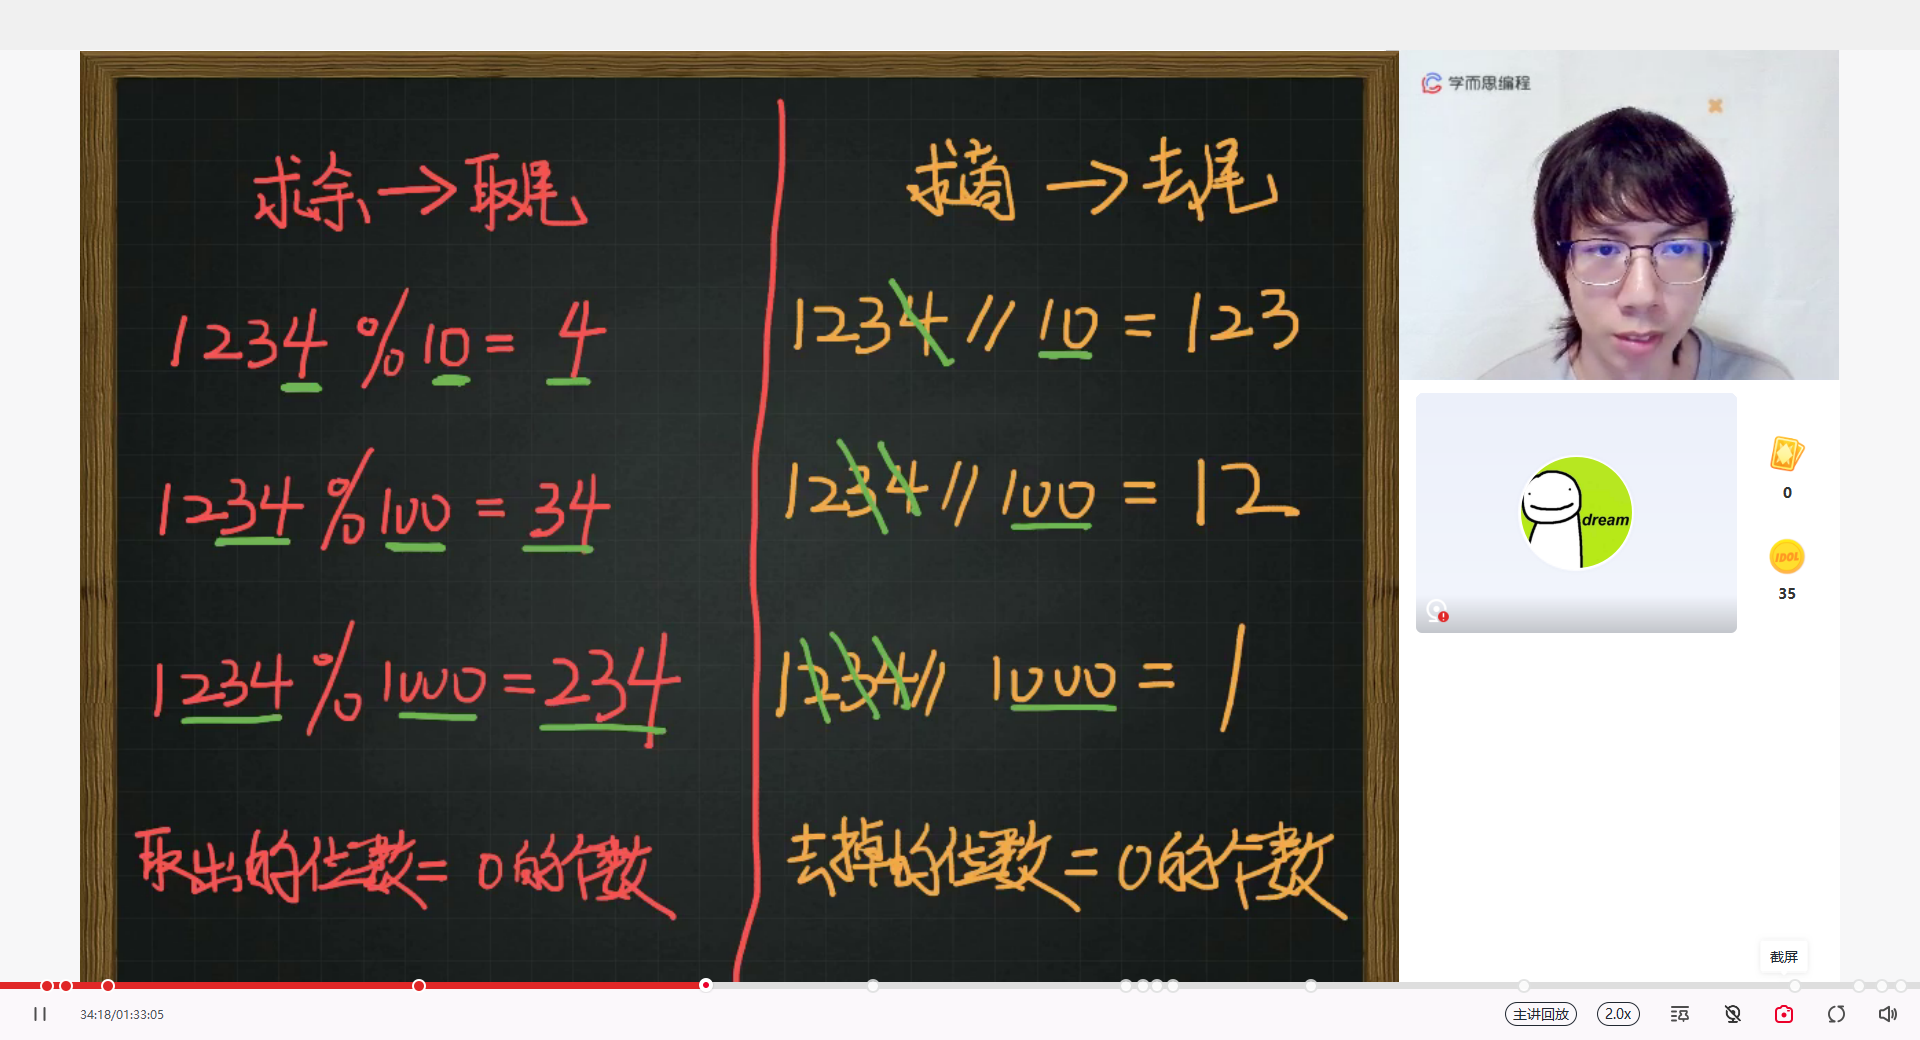 求余→取尾
1234 % 10 = 4
1234 % 100 = 34
1234 % 1000 = 234
取出的位数 = 0的个数
求商→去尾
1234 // 10 = 123
1234 // 100 = 12
1234 // 1000 = 1
去掉的位数 = 0的个数
学而思编程
dream
0
IDOL
35
截屏
34:18/01:33:05
主讲回放
2.0x